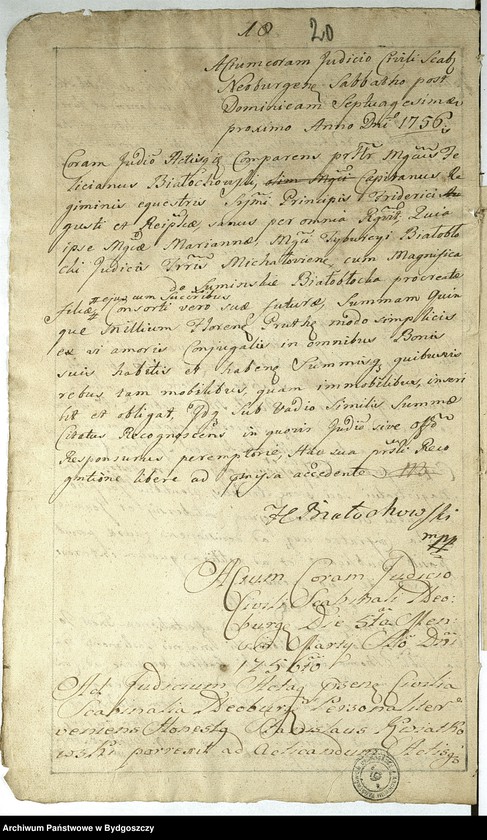 18 20
Actum coram Judicio Civili Scab
Neoburgen Sabbatho post
Dominicam Septuagesimæ
proximo Anno Dni 1756
Coram Judio Actisq Comparens Mgcus Fe
licianus Białochowski olim Mgci Capitaneus Re
giminis equestris Srſmi Principis Friderici
gusti et Reipcæ sanus per omnia Rgvit, Quia
ipse Mgcæ Mariannæ, Mgci Tyburcyi Białobło
cki Judicis Trris Michałovien, cum Magnifica
de Suminskie Białobłocka procreatæ
filiæ ejus cum Successoribus Consorti vero suæ futuræ, Summam Quin
que Millium Floren Pruthc modo simplicis
ex vi amoris Conjugalis in omnibus Bonis
suis habitis et haben Summisq quibusvis
rebus tam mobilibus, quam immobilibus, inscri
bit et obligat, Idq Sub Vadio Similis Summæ
Citatus Recognoscens in quovis Judio sive offo
Responsurus peremptorie, Ad sua prſti Reco
gnitione libere ad pmiſsa accedente
F Białochowski
mpp
Actum Coram Judicio
Civili Scabinali Neo:
burg Die 5ta Men
sis Marty Ao Dni
1756to
Ad Judicium Actaq psens Civilia
Scabinalia Neoburg Personaliter
veniens Honestq Stanislaus Kwiatko
wski porrexit ad Acticandum Actisq
Archiwum Państwowe w Bydgoszczy